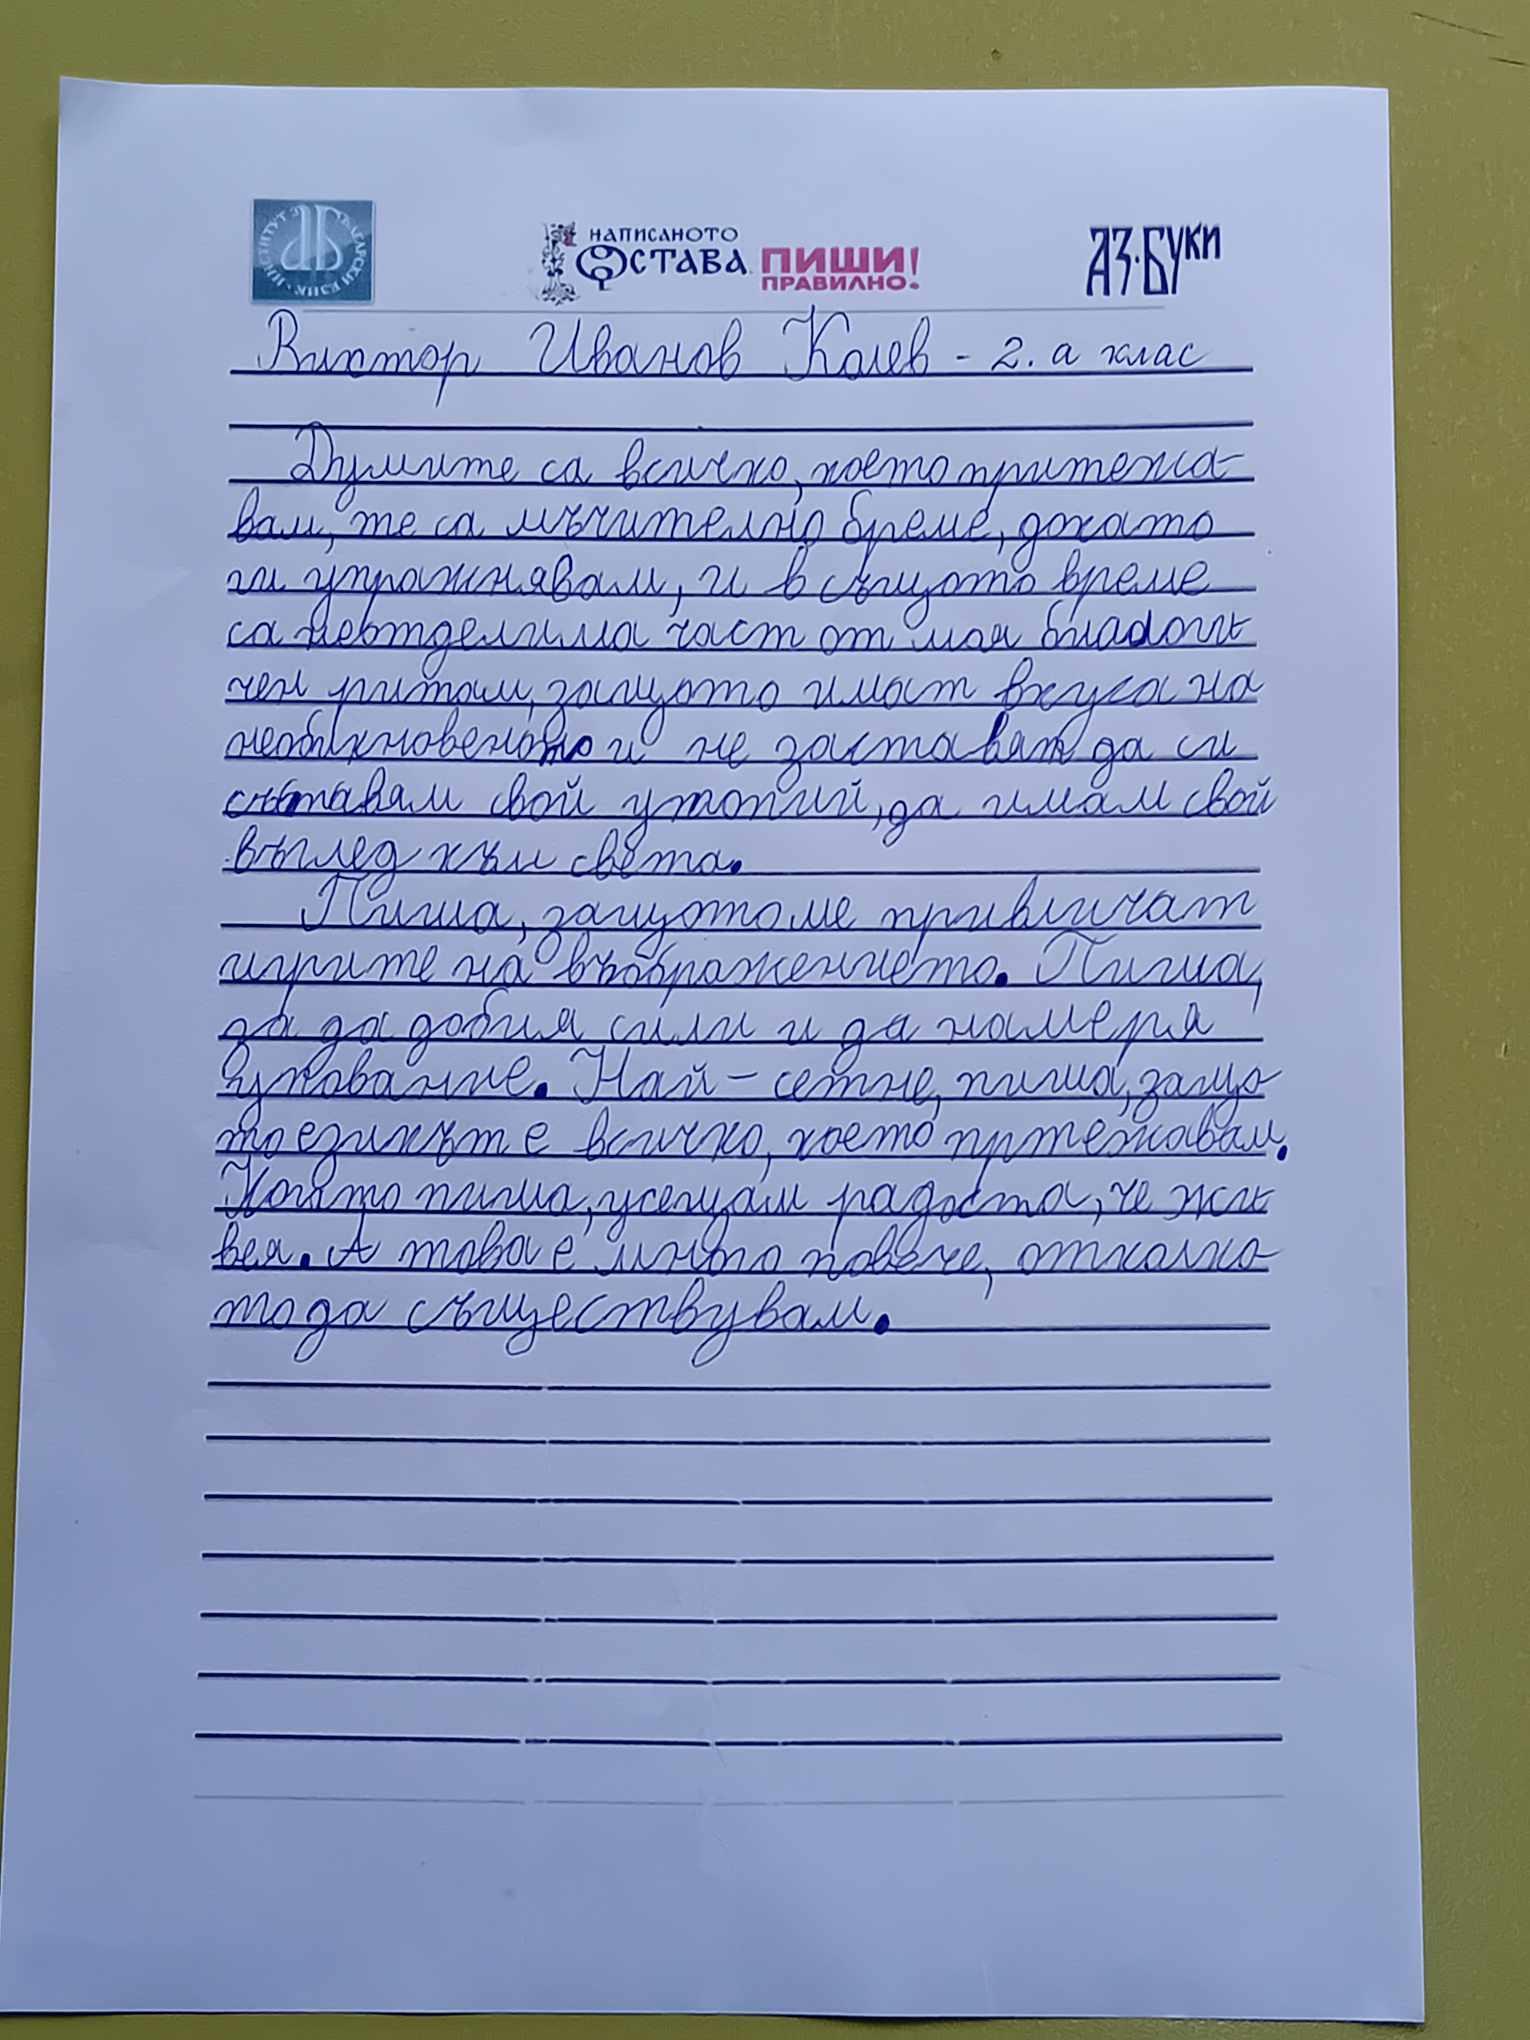 ИНСТИТУТ ЗА БЪЛГАРСКИ ЕЗИК
НАПИСАНОТО
ОСТАВА
ПИШИ!
ПРАВИЛНО.
АЗ·БУКИ
Виктор Иванов Колев - 2. а клас
Думите са всичко, което притежа-
вам, те са мъчително бреме, докато
ги упражнявам, и в същото време
са неотделима част от моя биологи
чен ритъм, защото имат вкуса на
необикновеното и не заставят да си
съставям свой утопий, да имам свой
възглед към света.
Пиша, защото ме привличат
игрите на въображението. Пиша,
за да добия сили и да намеря
упование. Най-сетне, пиша, защо-
то езикът е всичко, което пртежавам.
Когато пиша, усещам радостта, че жи
вея. А това е много повече, отколко-
то да съществувам.